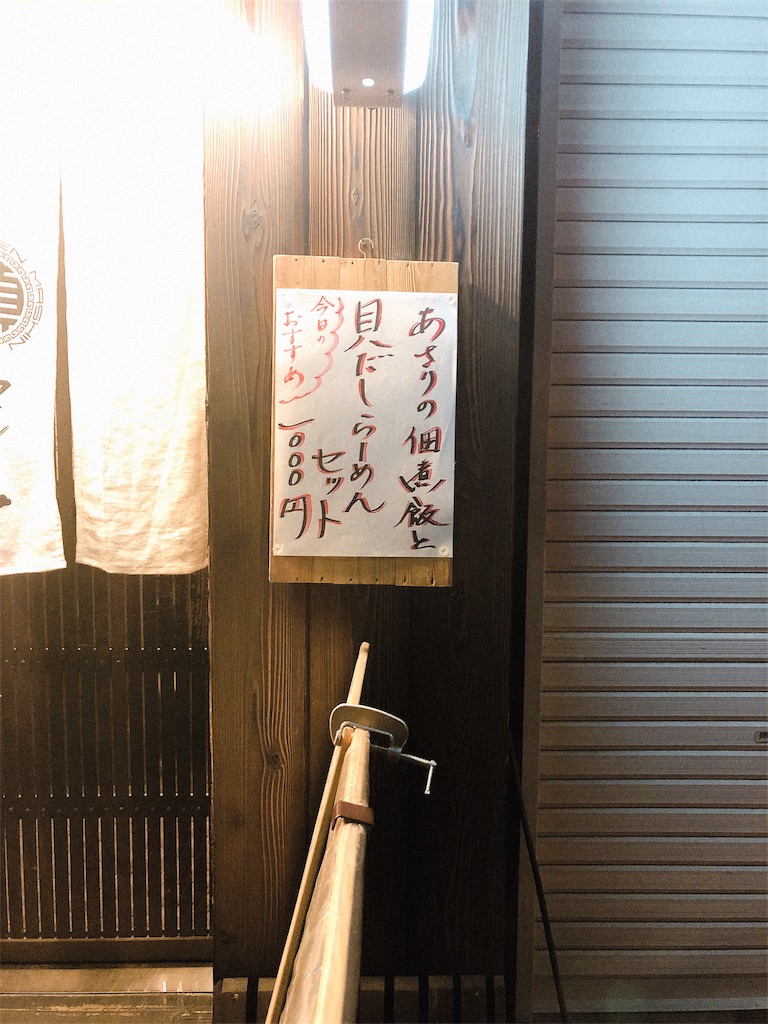 あさりの佃煮飯と
貝だしらーめん
セット
一〇〇〇円
今日の
おすすめ